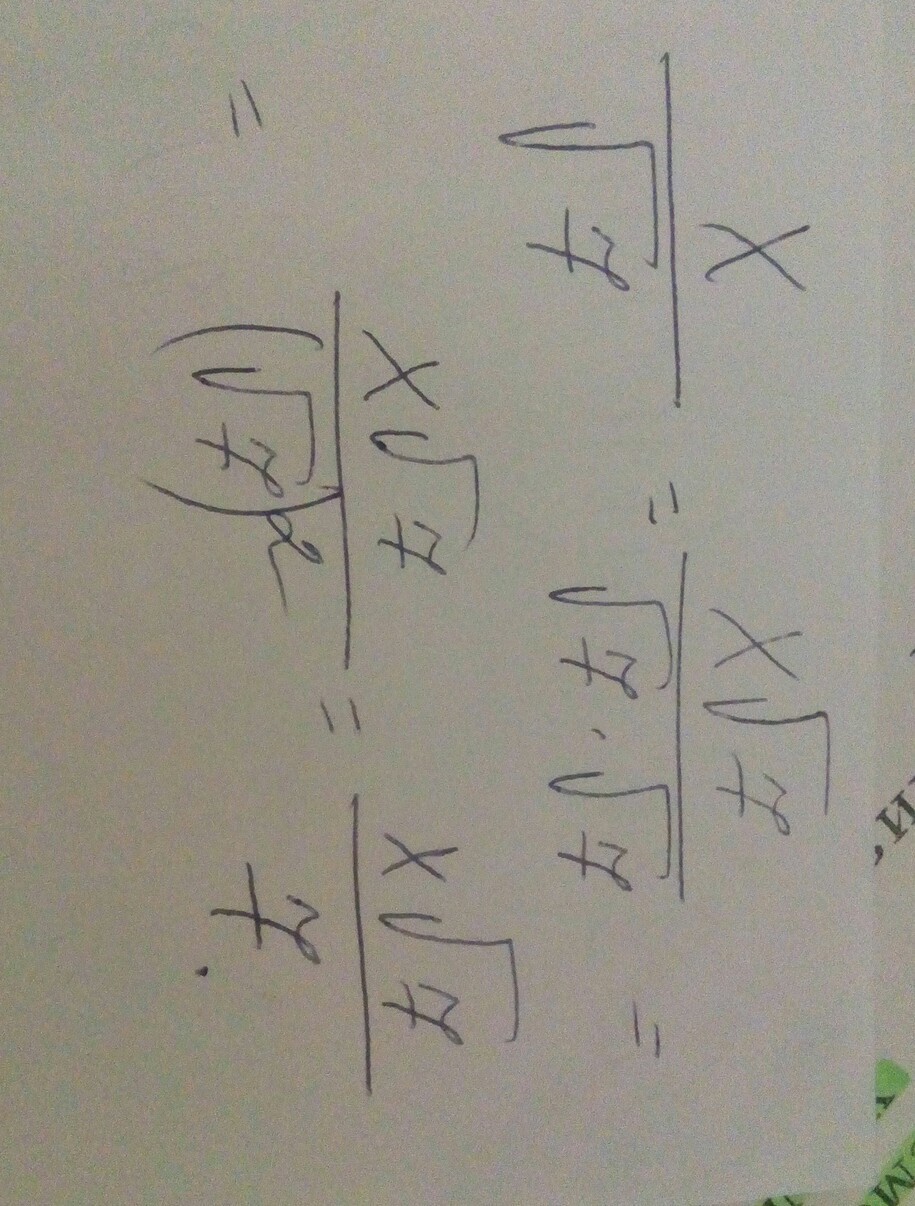 \frac{x}{\sqrt{7}} = \frac{x\sqrt{7}}{\sqrt{7} \cdot \sqrt{7}} =
= \frac{x\sqrt{7}}{(\sqrt{7})^2} = \frac{x\sqrt{7}}{7}.